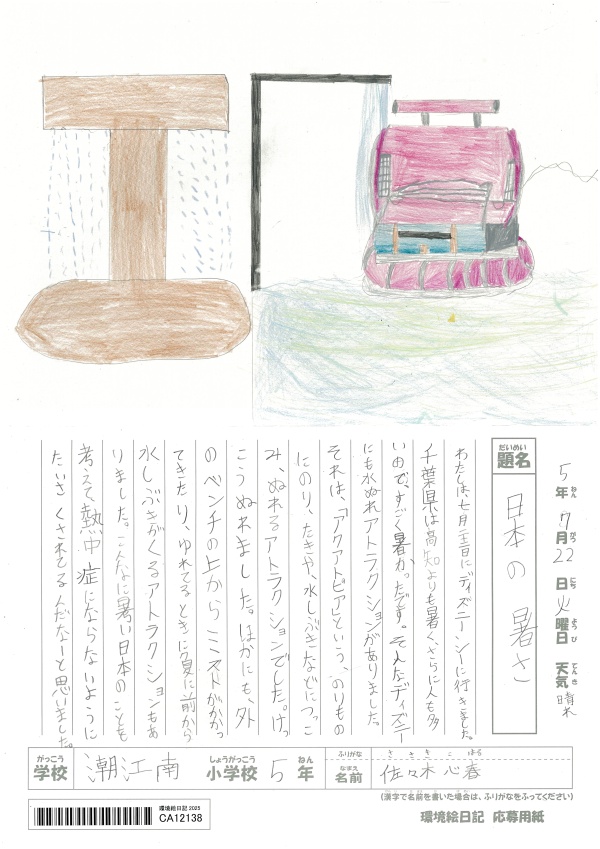 5年 7月22日 火曜日 天気 晴れ
ねん がつ にち ようび てんき
だいめい
題名
日本の暑さ
わたしは、七月二十三日にディズニーシーに行きました。
千葉県は高知よりも暑く、さらに人も多
いので、すごく暑かったです。そんなディズニー
にも水ぬれアトラクションがありました。
それは、「アクアトピア」という、のりもの
にのり、たきや、水しぶきなどにつっこ
み、ぬれるアトラクションでした。けっ
こうぬれました。ほかにも、外
のベンチの上からミストがかかっ
てきたり、ゆれてるときに急に前から
水しぶきがくるアトラクションもあ
りました。こんなに暑い日本のことも
考えて、熱中症にならないように
たいさくされてるんだなーと思いました。
がっこう しょうがっこう ねん
学校 潮江南 小学校 5年
ふりがな ささき こはる
なまえ
名前 佐々木 心春
(漢字で名前を書いた場合は、ふりがなをふってください)
環境絵日記 応募用紙
環境絵日記 2025
CA12138